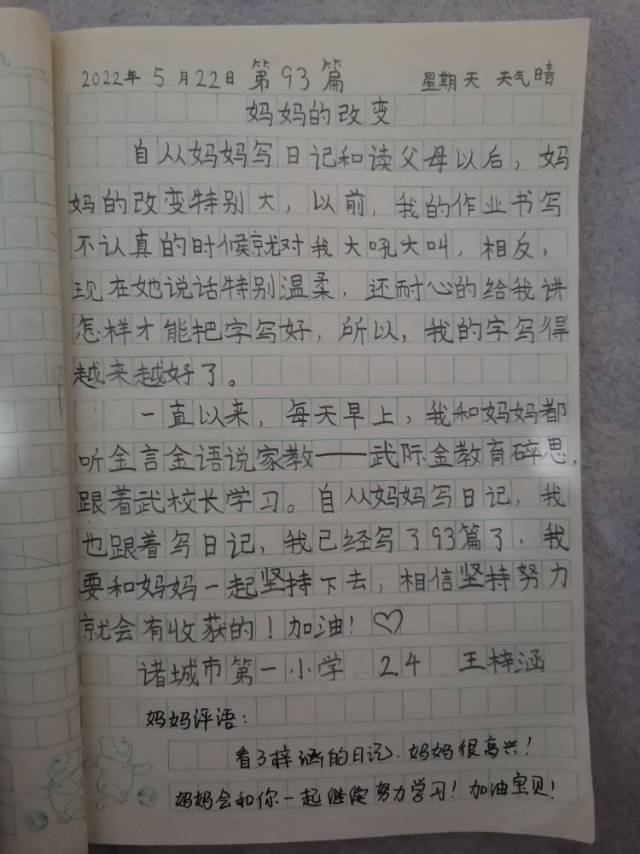 2022年5月22日 第93篇 星期天 天气晴
妈妈的改变
自从妈妈写日记和读父母以后，妈
妈的改变特别大，以前，我的作业书写
不认真的时候就对我大吼大叫，相反，
现在她说话特别温柔，还耐心的给我讲
怎样才能把字写好，所以，我的字写得
越来越好了。
一直以来，每天早上，我和妈妈都
听金言金语说家教——武际金教育碎思，
跟着武校长学习。自从妈妈写日记，我
也跟着写日记，我已经写了93篇了，我
要和妈妈一起坚持下去，相信坚持努力
就会有收获的！加油！♡
诸城市第一小学 2.4 王梓涵
妈妈评语：
看了梓涵的日记，妈妈很高兴！
妈妈会和你一起继续努力学习！加油宝贝！